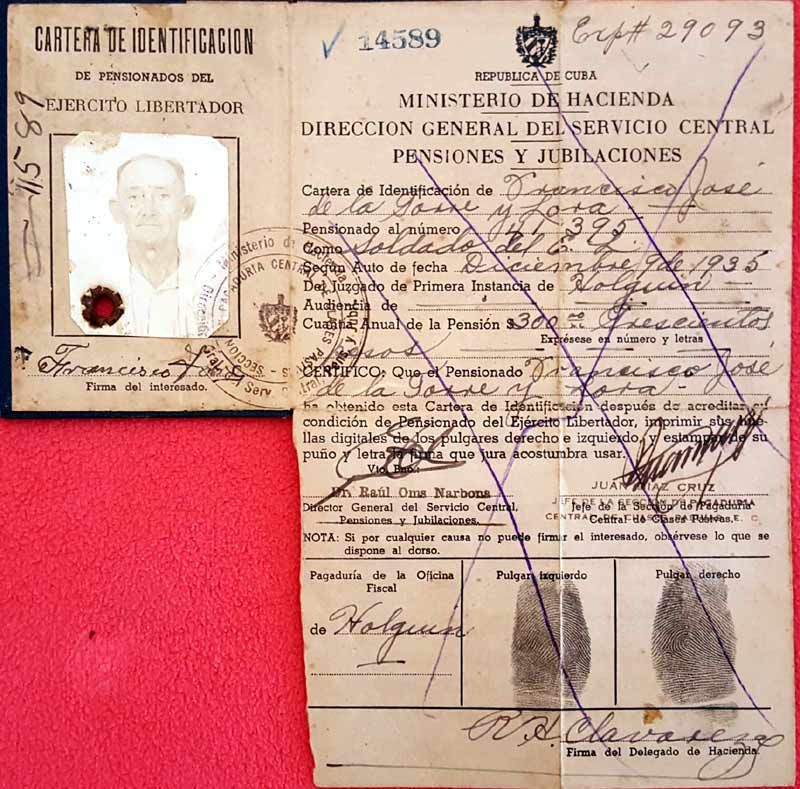 CARTERA DE IDENTIFICACION
DE PENSIONADOS DEL
EJERCITO LIBERTADOR
Francisco José
Firma del interesado.
14589
Exp# 29093
REPUBLICA DE CUBA
MINISTERIO DE HACIENDA
DIRECCION GENERAL DEL SERVICIO CENTRAL
PENSIONES Y JUBILACIONES
Cartera de Identificación de Francisco José
de la Torre y Lora
Pensionado al número 41,395
Como Soldado del 6º
Según Auto de fecha Diciembre 9 de 1935
Del Juzgado de Primera Instancia de Holguin
Audiencia de
Cuantía Anual de la Pensión $300.00 Trescientos
Expresese en número y letras
pesos
CERTIFICO: Que el Pensionado Francisco José
de la Torre y Lora
ha obtenido esta Cartera de Identificación después de acreditar su
condición de Pensionado del Ejército Libertador, imprimir sus hue-
llas digitales de los pulgares derecho e izquierdo, y estampar de su
puño y letra la firma que jura acostumbra usar.
Vto. Bno.:
Dr. Raúl Oms Narbona
Director General del Servicio Central,
Pensiones y Jubilaciones.
JUAN DIAZ CRUZ
JEFE DE LA SECCION DE PAGADURIA
Jefe de la Sección de Pagaduría
Central de Clases Pasivas.
NOTA: Si por cualquier causa no puede firmar el interesado, obsérvese lo que se
dispone al dorso.
Pagaduría de la Oficina
Fiscal
de Holguin
Pulgar izquierdo
Pulgar derecho
Firma del Delegado de Hacienda.